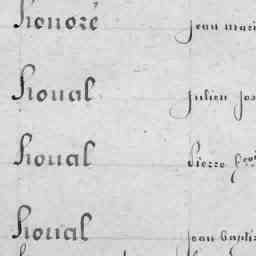 honoré Jean mari
houal Julien jos
houal Pierre
houal Jean baptis